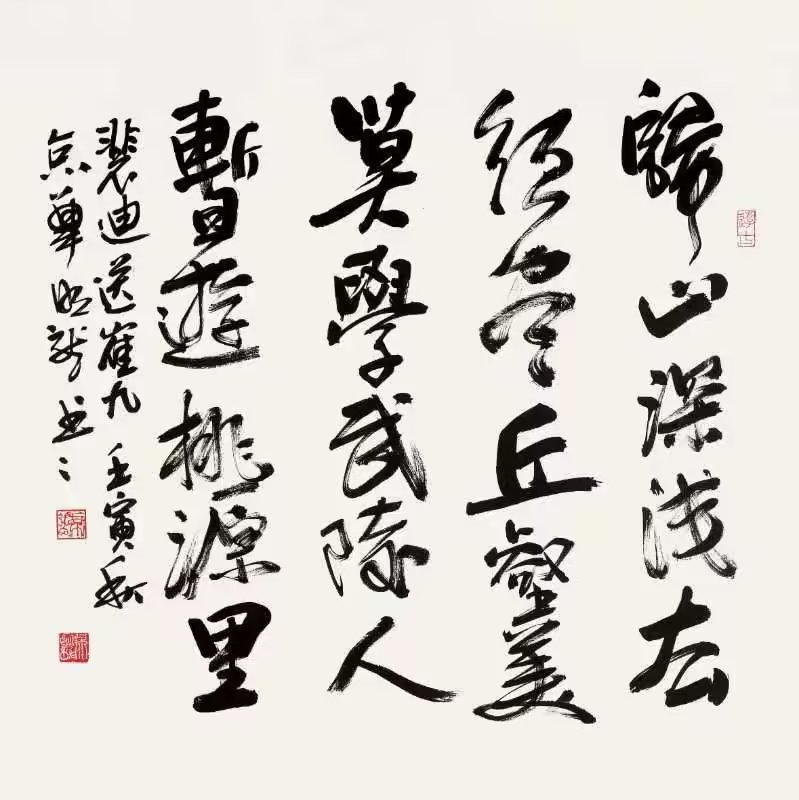 歸山深淺去
須盡丘壑美
莫學武陵人
暫遊桃源里
裴迪送崔九 壬寅秋
京華 书之